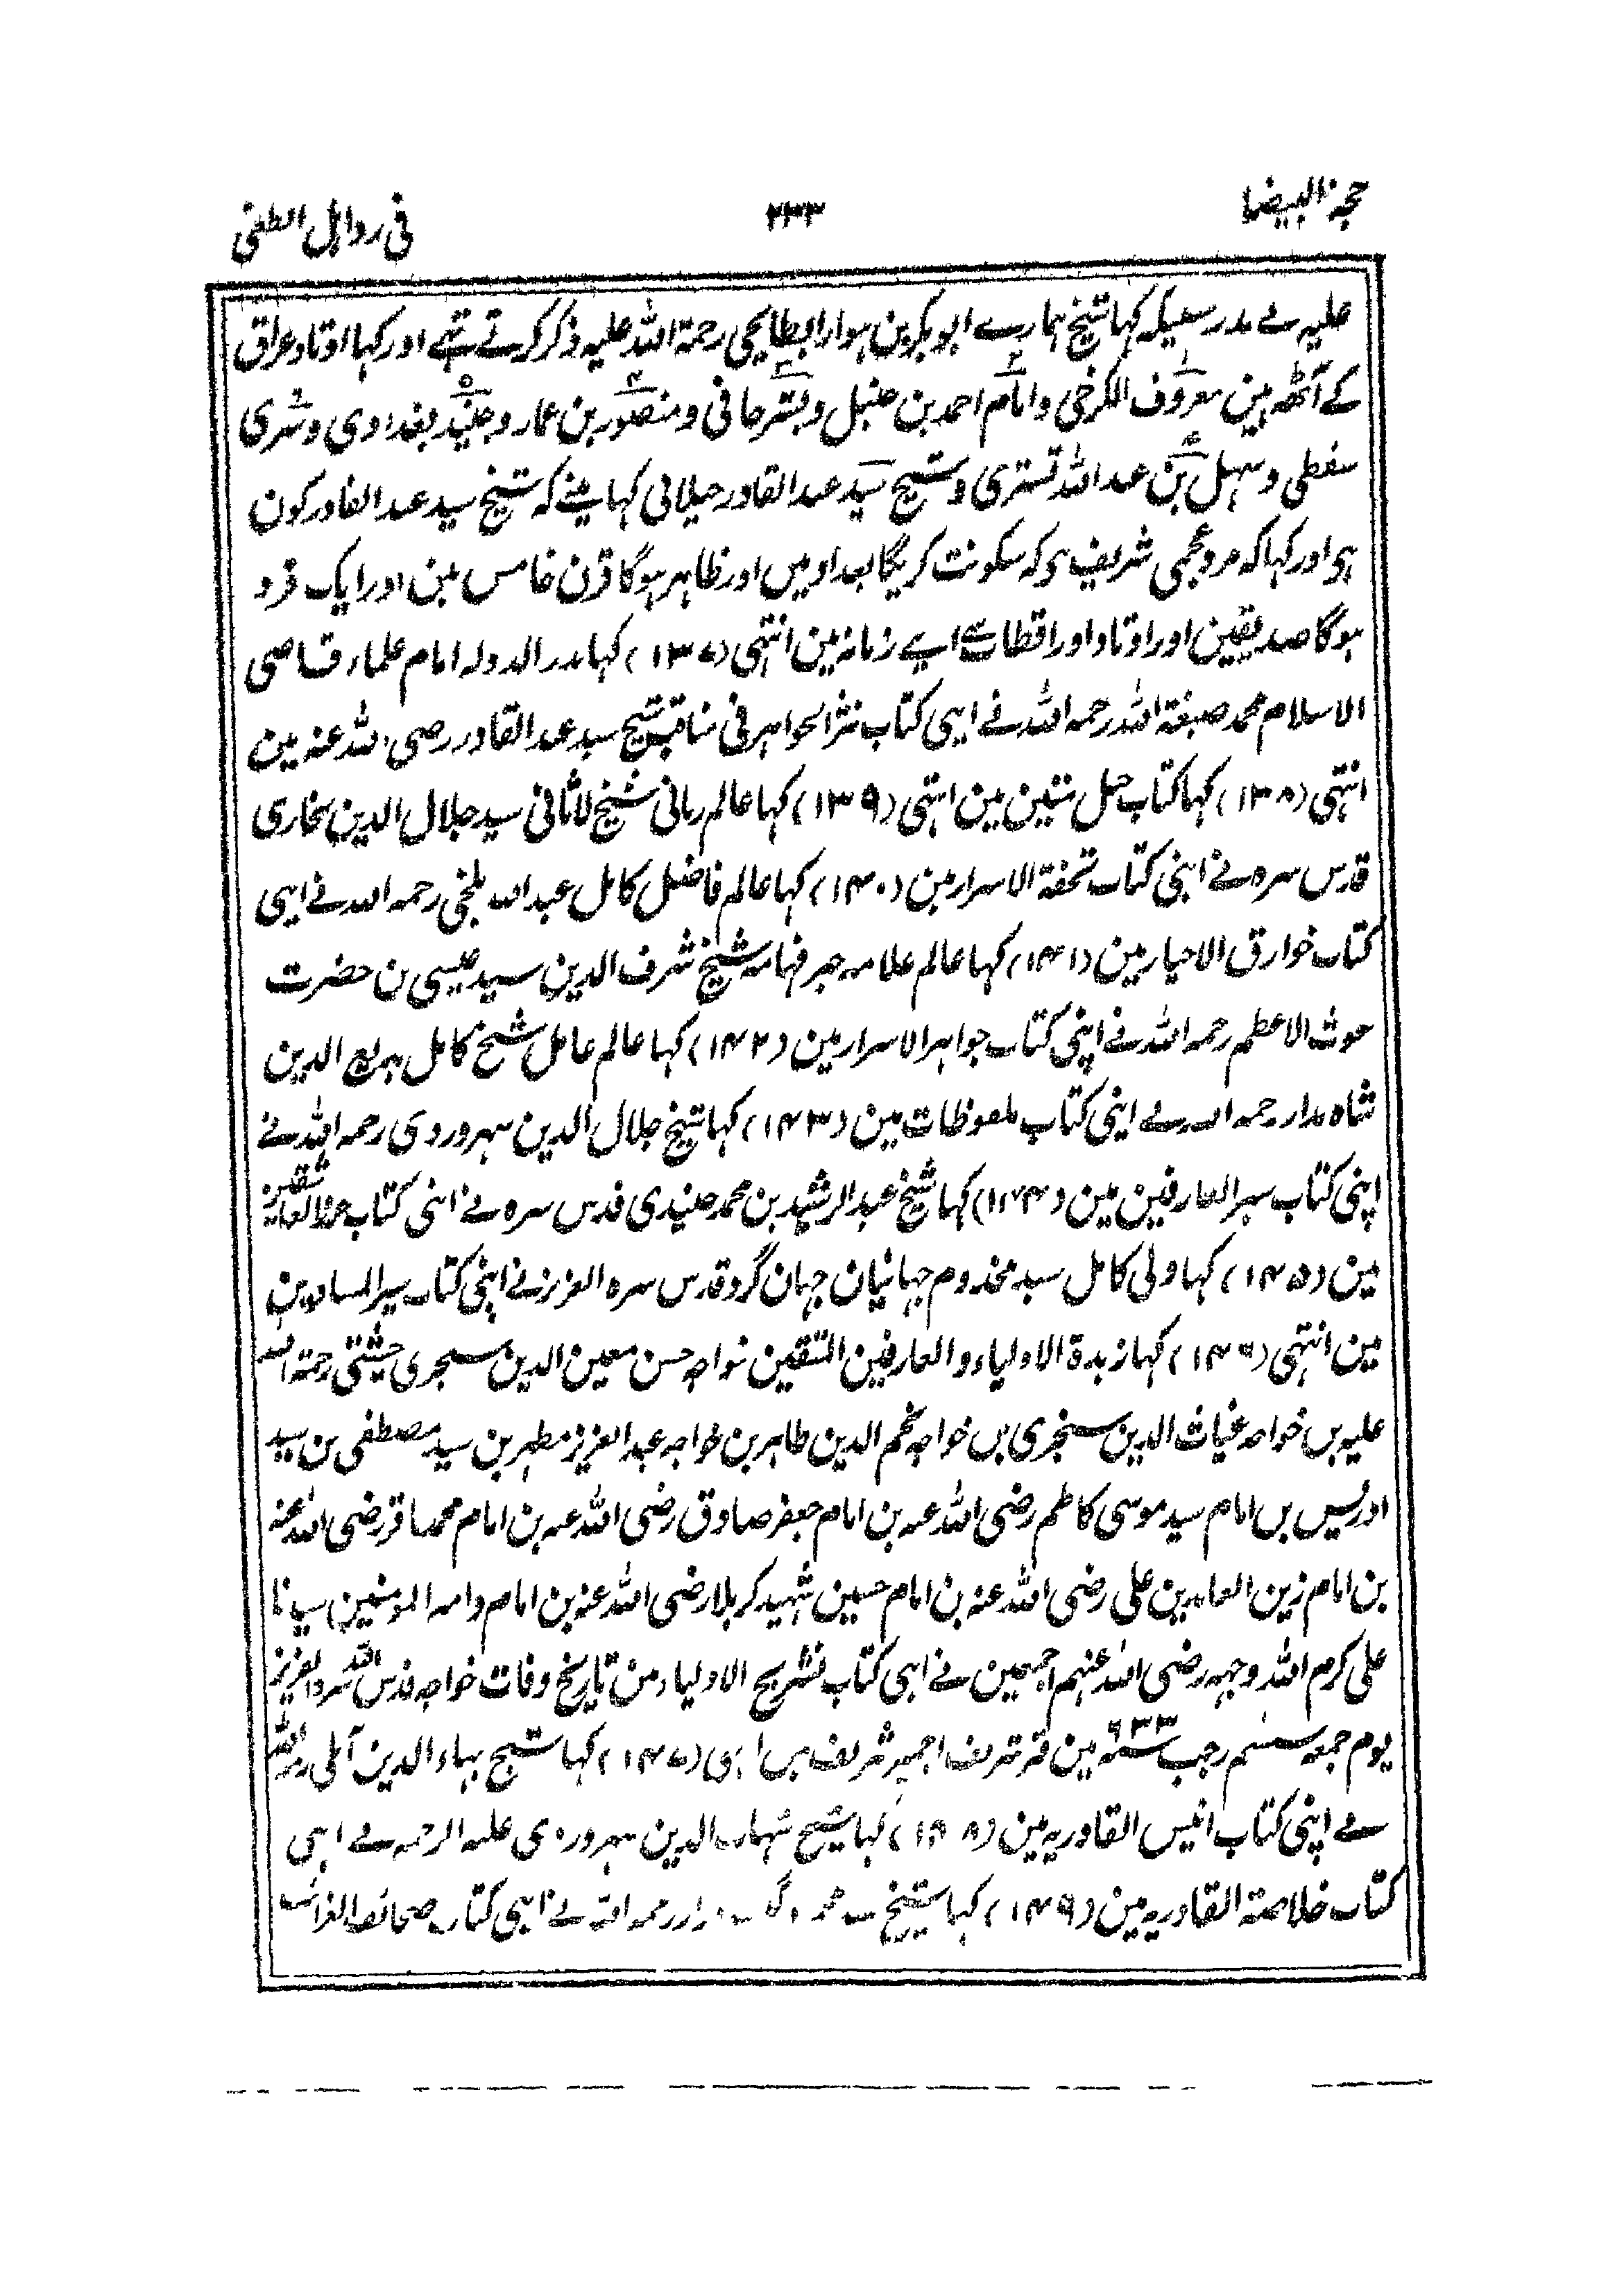 حجۃ البیضا ۲۳۳ فی رد اہل الطغی
علیہ نے مدرسیکہ کہا شیخ ہمارے ابوبکر بن ہوار ابطایحی رحمۃ اللہ علیہ ذکر کرتے تہے اور کہا اوتاد عراق
کے آٹھہ ہین معروف الکرخی و امام احمد بن حنبل و بشر حافی و منصور بن عمار و جنید بغدادی و سری
سقطی و سہل بن عبد اللہ تستری و شیخ سید عبد القادر جیلانی کہا مینے کہ شیخ سید عبد القادر کون
ہی اور کہا کہ مرد عجمی شریف ہی کہ سکونت کریگا بغداد میں اور ظاہر ہوگا قرن خامس مین اور ایک فرد
ہوگا صدیقین اور اوتاد اور اقطاب سے اپنے زمانہ مین انتہی (۱۳۷) کہا بدر الدولہ امام علماء قاضی
الاسلام محمد صبغۃ اللہ رحمہ اللہ نے اپنی کتاب نثر الجواہر فی مناقب شیخ سید عبد القادر رضی اللہ عنہ مین
انتہی (۱۳۸) کہا کتاب حبل متین مین انتہی (۱۳۹) کہا عالم ربانی شیخ لاثانی سید جلال الدین بخاری
قدس سرہ نے اپنی کتاب تحفۃ الاسرار مین (۱۴۰) کہا عالم فاضل کامل عبد اللہ بلخی رحمہ اللہ نے اپنی
کتاب خوارق الاحیار مین (۱۴۱) کہا عالم علامہ حبر فہامہ شیخ شرف الدین سید عیسی بن حضرت
غوث الاعظم رحمہ اللہ نے اپنی کتاب جواہر الاسرار مین (۱۴۲) کہا عالم عامل شیخ کامل بدیع الدین
شاہ مدار رحمہ اللہ نے اپنی کتاب ملفوظات مین (۱۴۳) کہا شیخ جلال الدین سہروردی رحمہ اللہ نے
اپنی کتاب سیر العارفین مین (۱۴۴) کہا شیخ عبد الرشید بن محمد جنیدی قدس سرہ نے اپنی کتاب
مین (۱۴۵) کہا ولی کامل سید مخدوم جہانیان جہان گرد قدس سرہ العزیز نے اپنی کتاب سیر
مین انتہی (۱۴۶) کہا زبدۃ الاولیاء و العارفین المتقین خواجہ حسن معین الدین سنجری چشتی رحمۃ اللہ
علیہ بن خواجہ غیاث الدین سنجری بن خواجہ نجم الدین طاہر بن خواجہ عبد العزیز مطہر بن سید مصطفی بن سید
ادریس بن امام سید موسی کاظم رضی اللہ عنہ بن امام جعفر صادق رضی اللہ عنہ بن امام محمد باقر رضی اللہ عنہ
بن امام زین العابدین علی رضی اللہ عنہ بن امام حسین شہید کربلا رضی اللہ عنہ بن امام و امیر المومنین سیدنا
علی کرم اللہ وجہہ رضی اللہ عنہم اجمعین نے اپنی کتاب تشریح الاولیاء من تاریخ وفات خواجہ قدس اللہ سرہ العزیز
یوم جمعہ ششم رجب سنہ ۶۳۳ مین قبر شریف اجمیر شریف میں انتہی (۱۴۷) کہا شیخ بہاء الدین آملی رحمہ اللہ
نے اپنی کتاب انیس القادریہ مین (۱۴۸) کہا شیخ شہاب الدین سہروردی علیہ الرحمہ نے اپنی
کتاب خلاصۃ القادریہ مین (۱۴۹) کہا شیخ رحمہ اللہ نے اپنی کتاب صحائف الغرائب